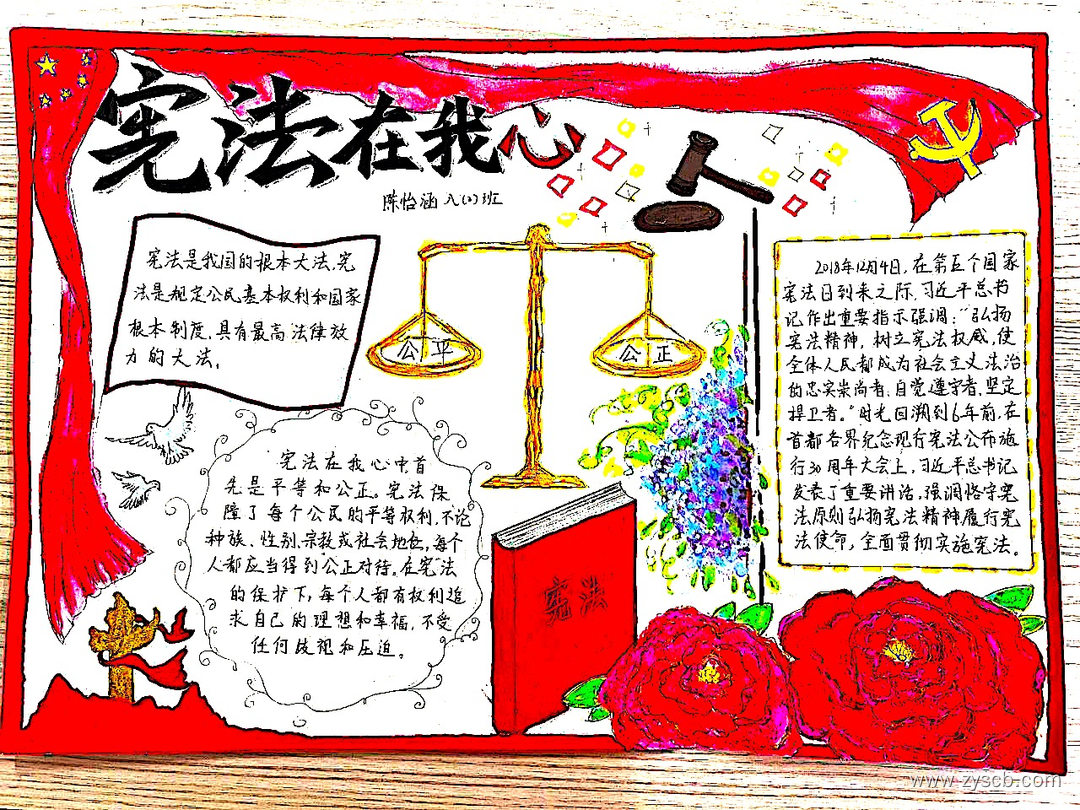 宪法在我心
陈怡涵 八(2)班
宪法是我国的根本大法,宪
法是规定公民基本权利和国家
根本制度,具有最高法律效
力的大法。
公平
公正
2018年12月4日,在第五个国家
宪法日到来之际,习近平总书
记作出重要指示强调:“弘扬
宪法精神,树立宪法权威,使
全体人民都成为社会主义法治
的忠实崇尚者,自觉遵守者,坚定
捍卫者。”时光回溯到6年前,在
首都各界纪念现行宪法公布施
行30周年大会上,习近平总书记
发表了重要讲话,强调恪守宪
法原则弘扬宪法精神履行宪
法使命,全面贯彻实施宪法。
宪法在我心中首
先是平等和公正。宪法保
障了每个公民的平等权利,不论
种族、性别、宗教或社会地位,每个
人都应当得到公正对待。在宪法
的保护下,每个人都有权利追
求自己的理想和幸福,不受
任何歧视和压迫。
宪法
www.zyscb.com